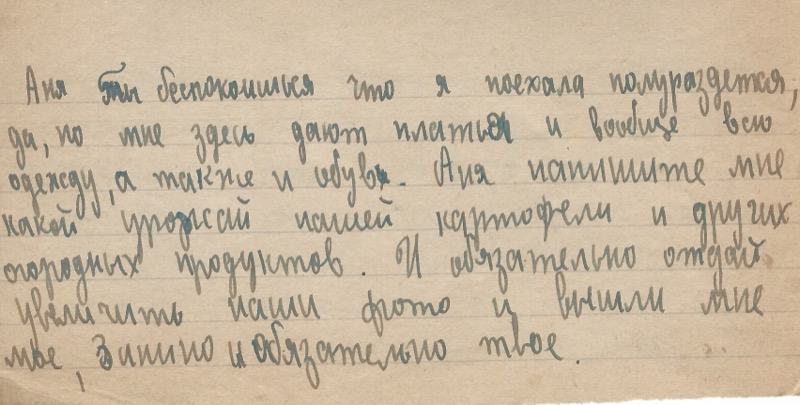 Аня ты беспокоишься что я поехала полураздетая,
да, но мне здесь дают платья и вообще всю
одежду, а также и обувь. Аня напишите мне
какой урожай нашей картофели и других
огородных продуктов. И обязательно отдай
увеличить наши фото и вышли мне
мое, Зинино и обязательно твое.